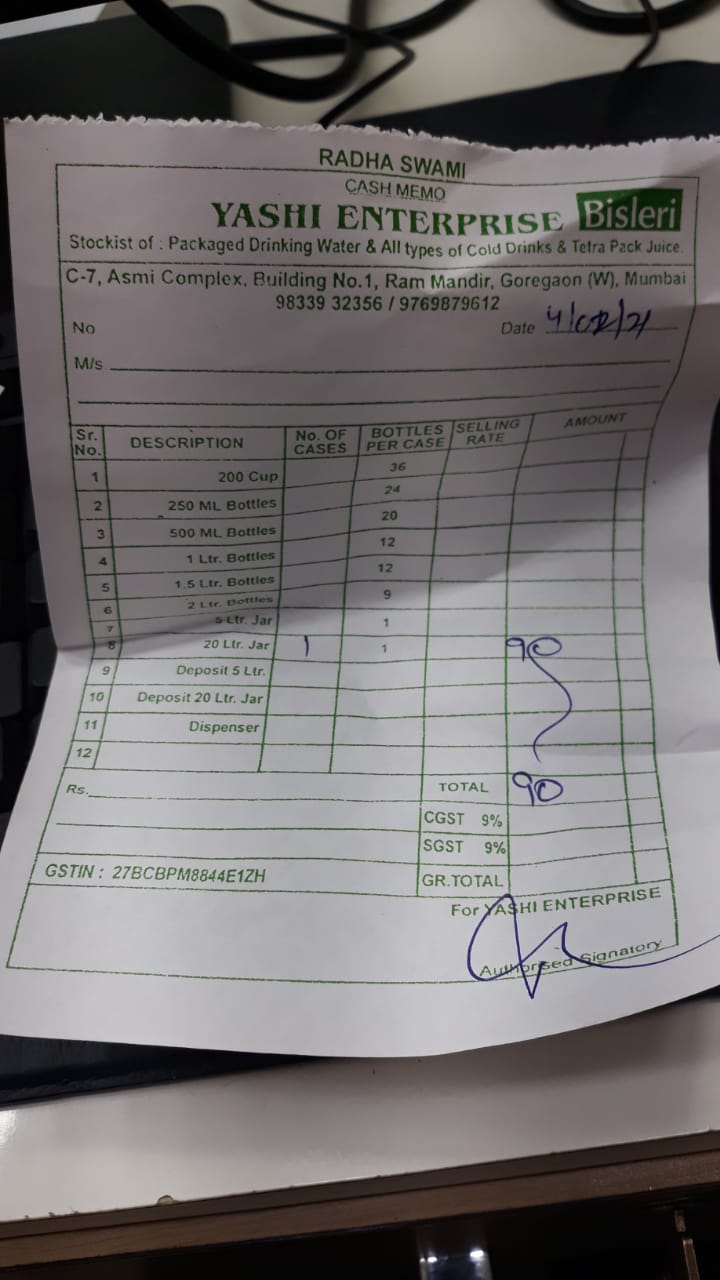 RADHA SWAMI
CASH MEMO
YASHI ENTERPRISE Bisleri
Stockist of : Packaged Drinking Water & All types of Cold Drinks & Tetra Pack Juice.
C-7, Asmi Complex, Building No.1, Ram Mandir, Goregaon (W), Mumbai
98339 32356 / 9769879612
No Date 4/02/21
M/s
Sr. No. DESCRIPTION No. OF CASES BOTTLES PER CASE SELLING RATE AMOUNT
1 200 Cup 36
2 250 ML Bottles 24
3 500 ML Bottles 20
4 1 Ltr. Bottles 12
5 1.5 Ltr. Bottles 12
6 2 Ltr. Bottles 9
7 5 Ltr. Jar 1
8 20 Ltr. Jar 1 1 90
9 Deposit 5 Ltr.
10 Deposit 20 Ltr. Jar
11 Dispenser
12
Rs. TOTAL 90
CGST 9%
SGST 9%
GSTIN : 27BCBPM8844E1ZH GR.TOTAL
For YASHI ENTERPRISE
Authorised Signatory